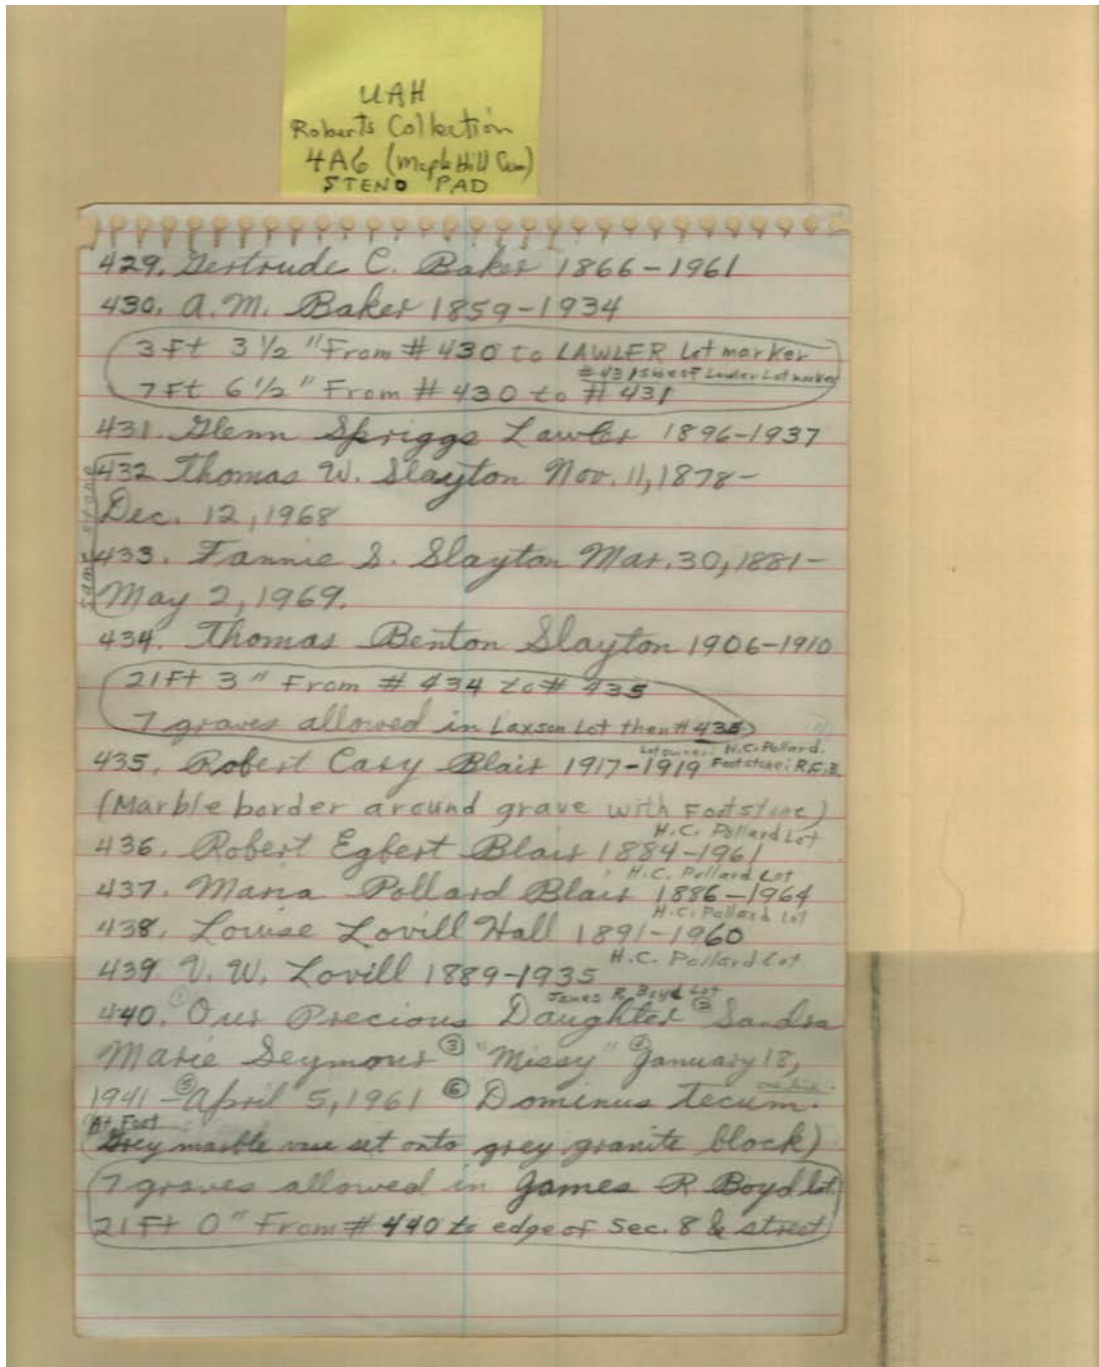 UAH
Roberts Collection
4A6 (Maple Hill Cem)
STENO PAD
429. Gertrude C. Baker 1866-1961
430. A.M. Baker 1859-1934
3 Ft 3 1/2 " From # 430 to LAWLER Lot marker
# 431 side of Lawler Lot marker
7 Ft 6 1/2 " From # 430 to # 431
431. Glenn Spriggs Lawler 1896-1937
same stone
432 Thomas W. Slayton Nov. 11, 1878-
Dec. 12, 1968
433. Fannie S. Slayton Mar. 30, 1881-
May 2, 1969.
434. Thomas Benton Slayton 1906-1910
21 Ft 3 " From # 434 to # 435
7 graves allowed in Laxson Lot then # 435
Lot owner: H.C. Pollard.
435. Robert Cary Blair 1917-1919 Footstone: R.C.B.
(Marble border around grave with Footstone)
H.C. Pollard Lot
436. Robert Egbert Blair 1884-1961
H.C. Pollard Lot
437. Maria Pollard Blair 1886-1964
H.C. Pollard Lot
438. Louise Lovill Hall 1891-1960
H.C. Pollard Lot
439. V. W. Lovill 1889-1935
James R. Boyd Lot
440. ① Our Precious Daughter ② Sandra
Marie Seymour ③ "Missy" ④ January 18,
1941 - ⑤ April 5, 1961 ⑥ Dominus tecum.
At Foot
(Grey marble vase set onto grey granite block)
7 graves allowed in James R Boyd lot
21 Ft 0 " From # 440 to edge of Sec. 8 & street